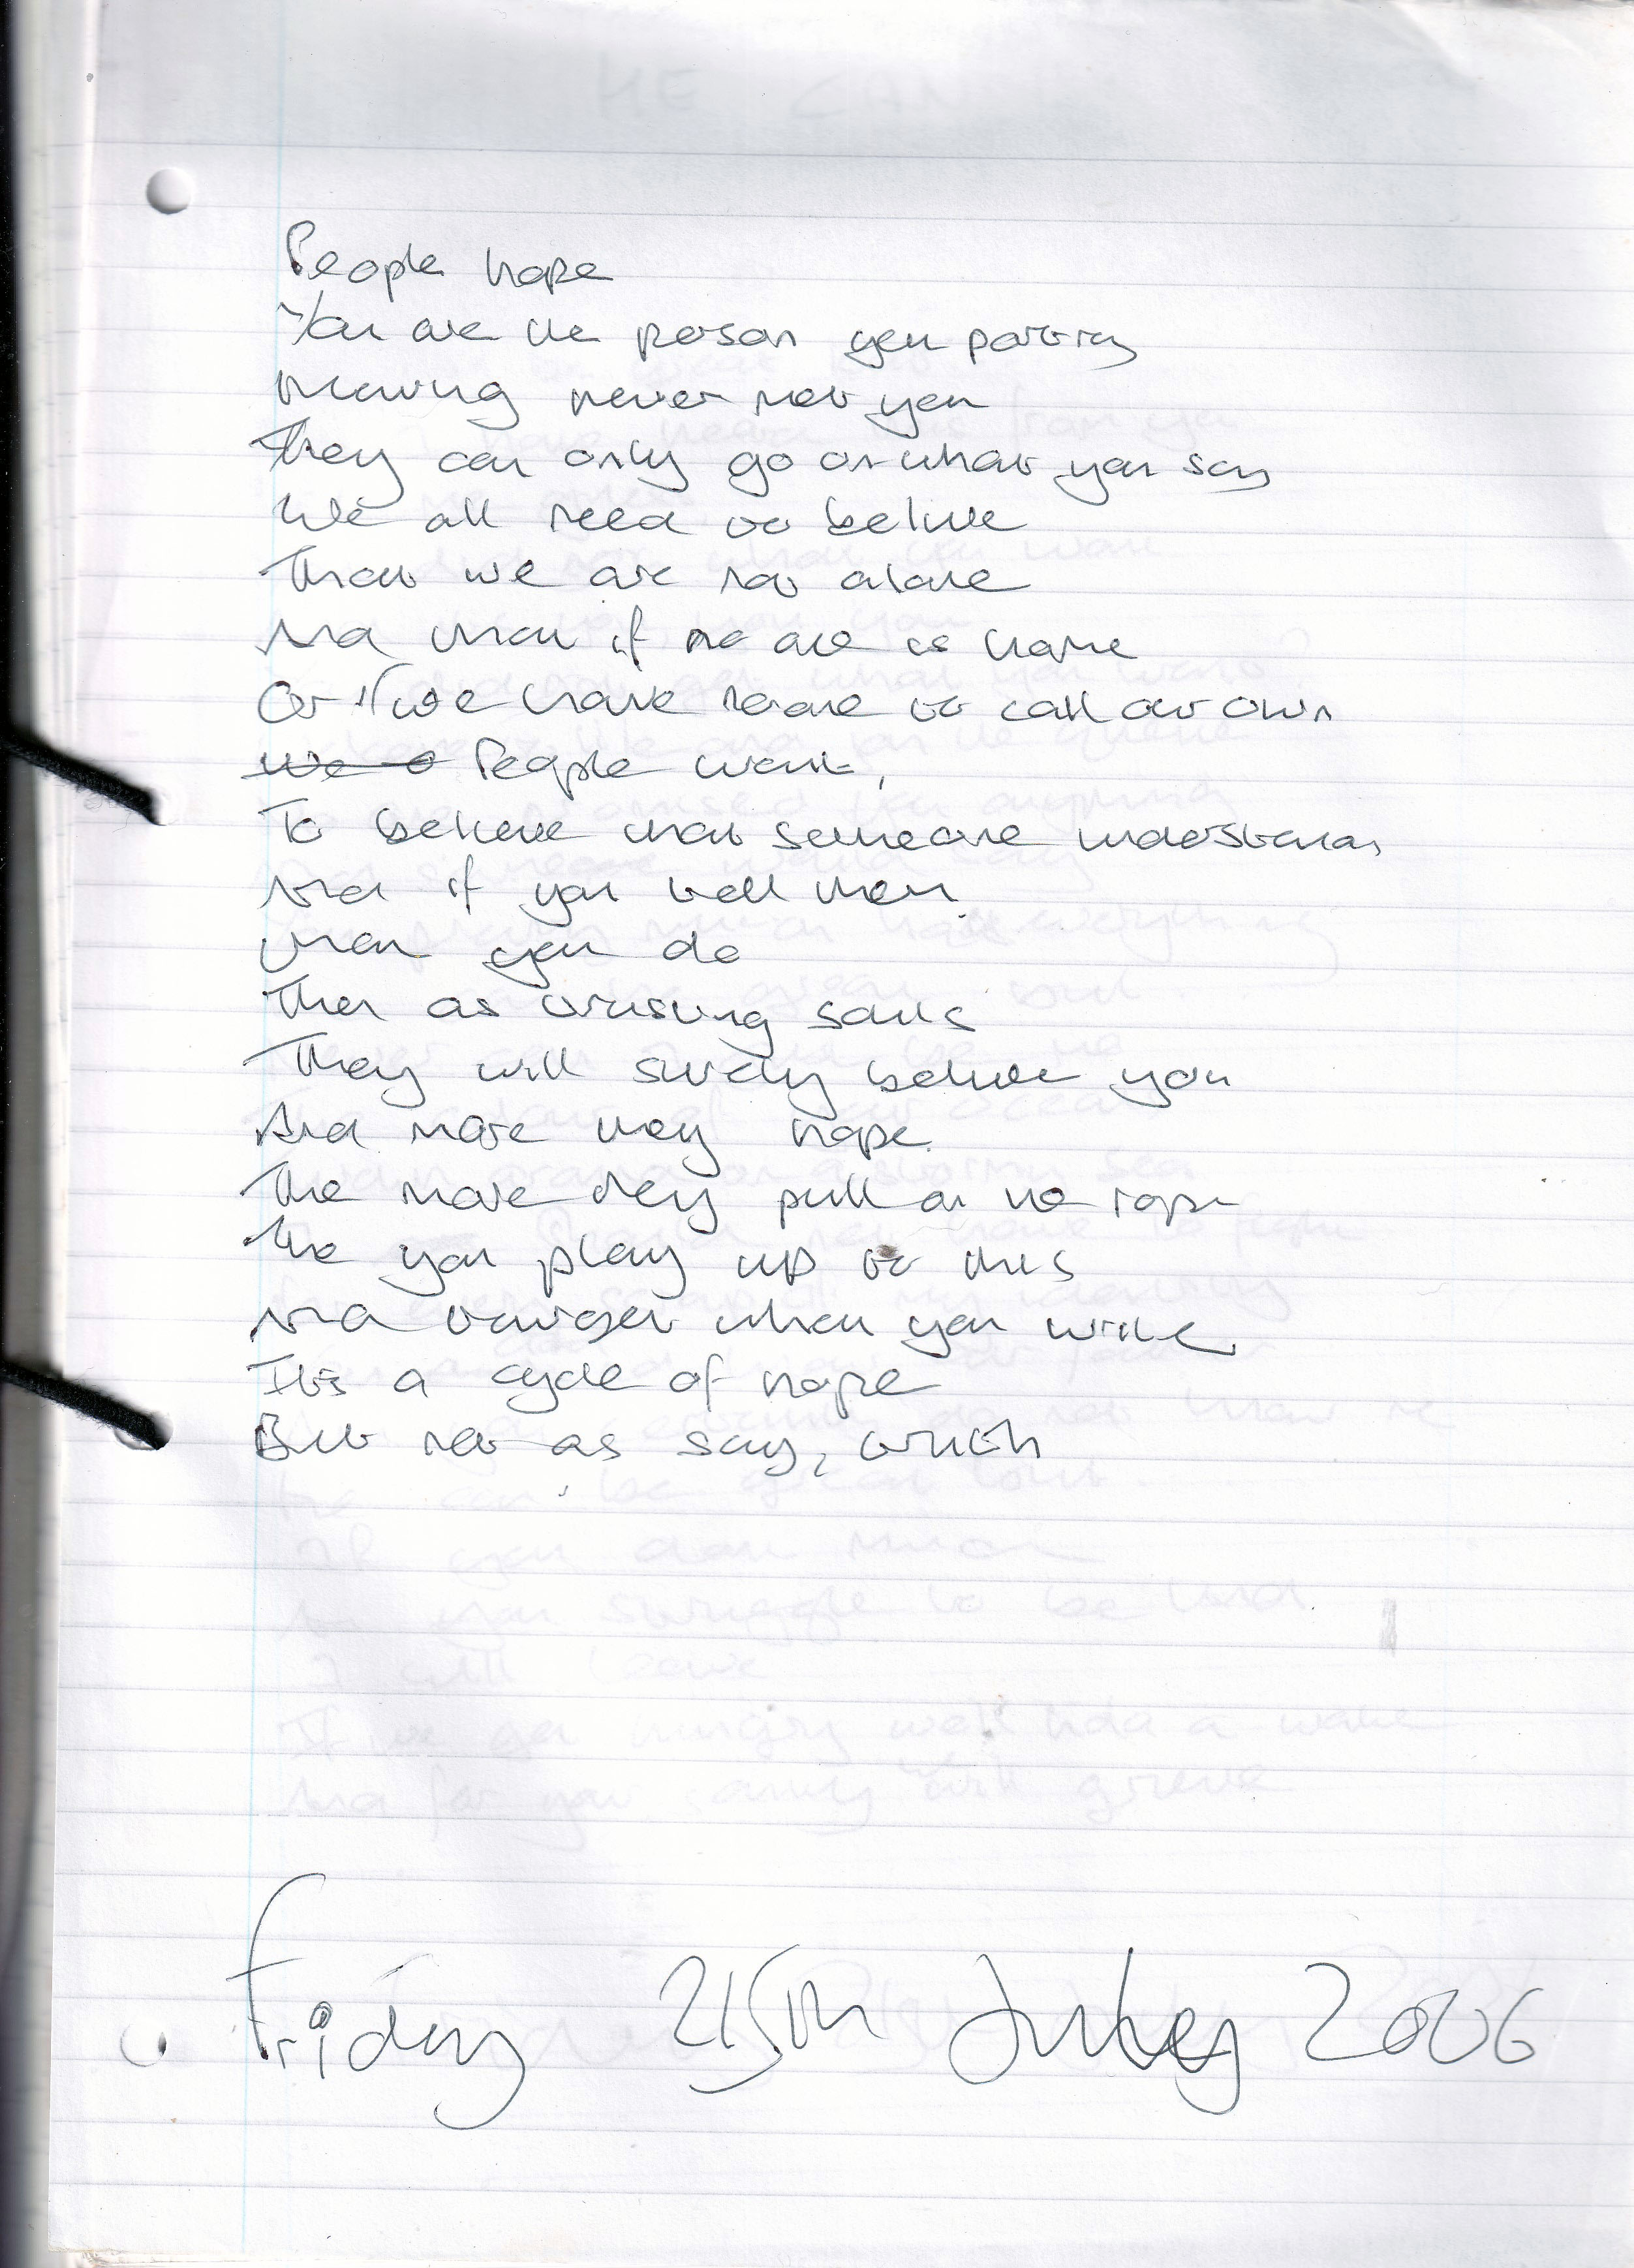 People hope
You are the person you portray
Having never met you
They can only go on what you say
We all need to belive
That we are not alone
And then if no one is home
Or if we have noone to call our own
We People want,
To believe that someone understands
And if you tell them
That you do
Then as trusting souls
They will surely belive you
And more they hope
The more they pull on the rope
The you play up to this
And when you write
It's a cycle of hope
But not as say, truth
Friday 21st July 2006